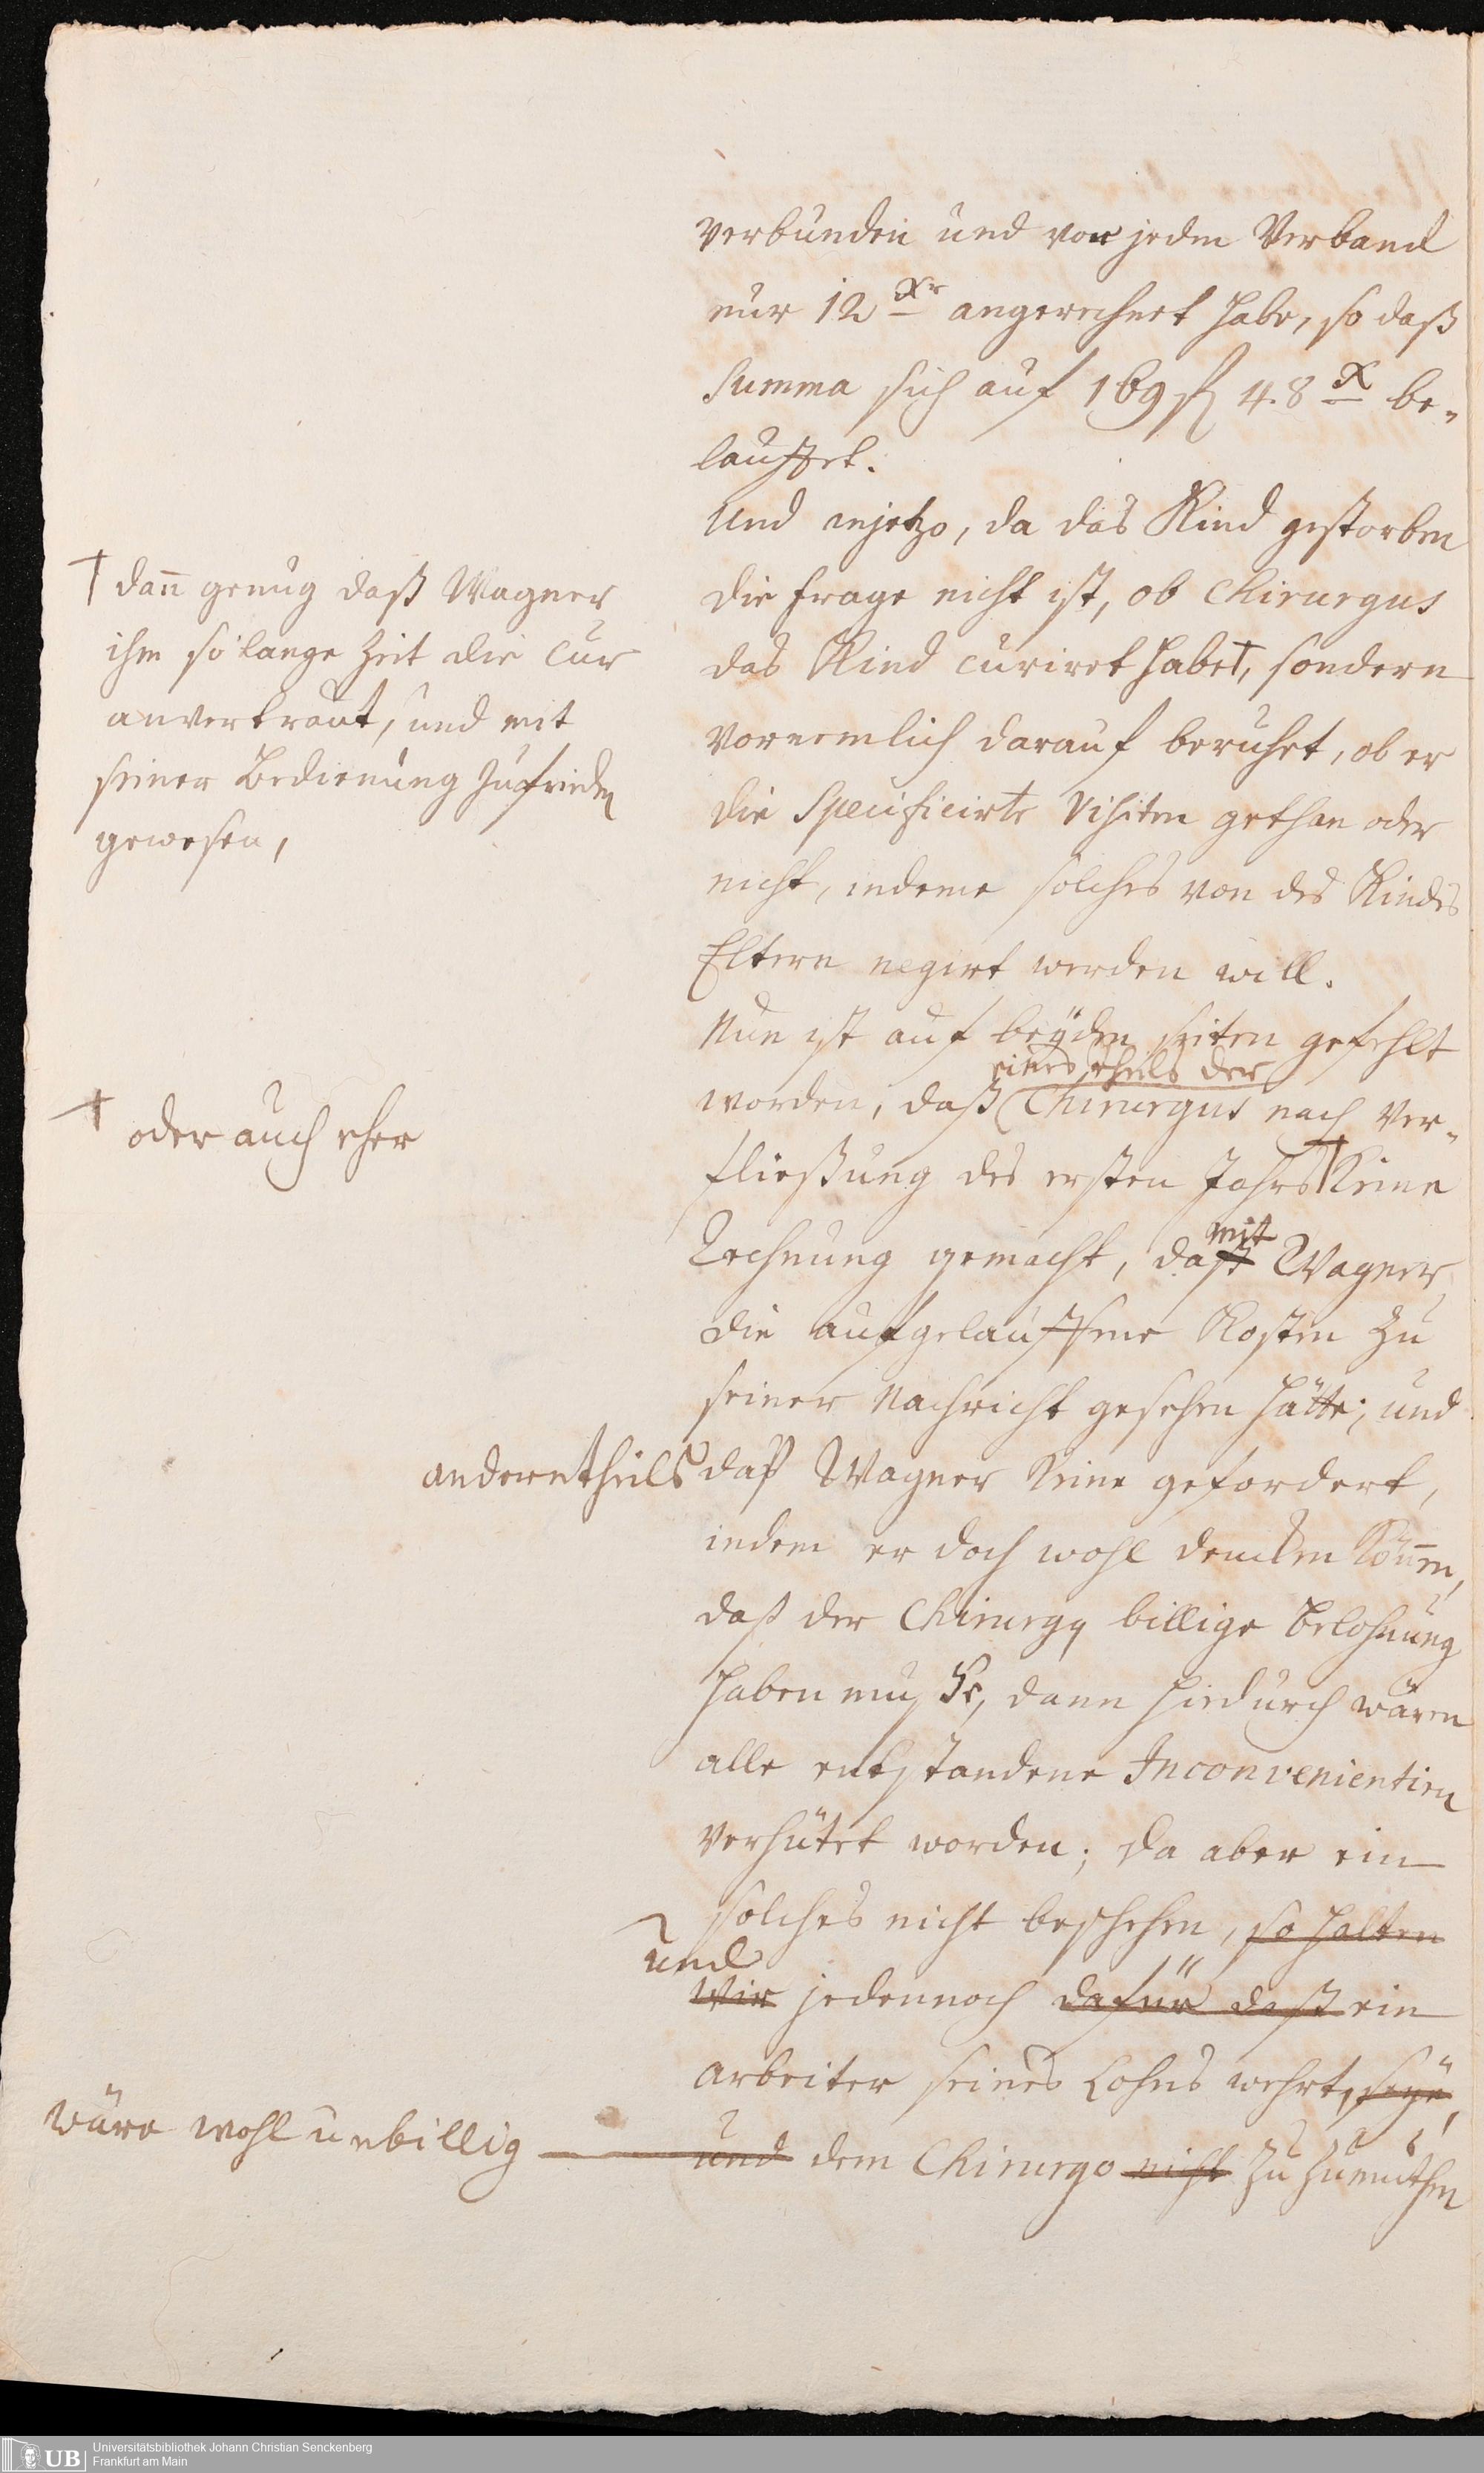 verbunden und vor jeden Verband
nur 12 Xr angerechnet habe, so daß
Summa sich auf 169 fl 48 X be-
lauffet.
Und anjetzo, da das Kind gestorben
die frage nicht ist, ob Chirurgus
das Kind curiret habe†, sondern
vornemlich darauf beruhet, ob er
die Specificirte Visiten gethan oder
nicht, indeme solches von des Kindes
Eltern negirt werden will.
† dann genug daß Wagner
ihm so lange Zeit die Cur
anvertraut, und mit
seiner Bedienung zufrieden
gewesen,
Nun ist auf beÿden seiten gefehlt
eines theils der
worden, daß Chirurgus nach Ver-
fließung des ersten Jahrs † Keine
† oder auch eher
Rechnung gemacht, daß mit Wagner
die aufgelauffene Kosten zu
seiner Nachricht gesehen hätte; und
anderntheils daß Wagner Keine gefordert,
indem er doch wohl dencken Können,
daß der Chirurgq billige Belohnung
haben müße, dann hiedurch wären
alle entstandene Inconvenientien
verhütet worden; da aber ein
solches nicht beschehen, so halten
und
Wir jedennoch dafür daß ein
arbeiter seines Lohns wehrt, seÿe,
wäre wohl unbillig
und dem Chirurgo nicht zu zumuthen
Universitätsbibliothek Johann Christian Senckenberg
Frankfurt am Main
UB